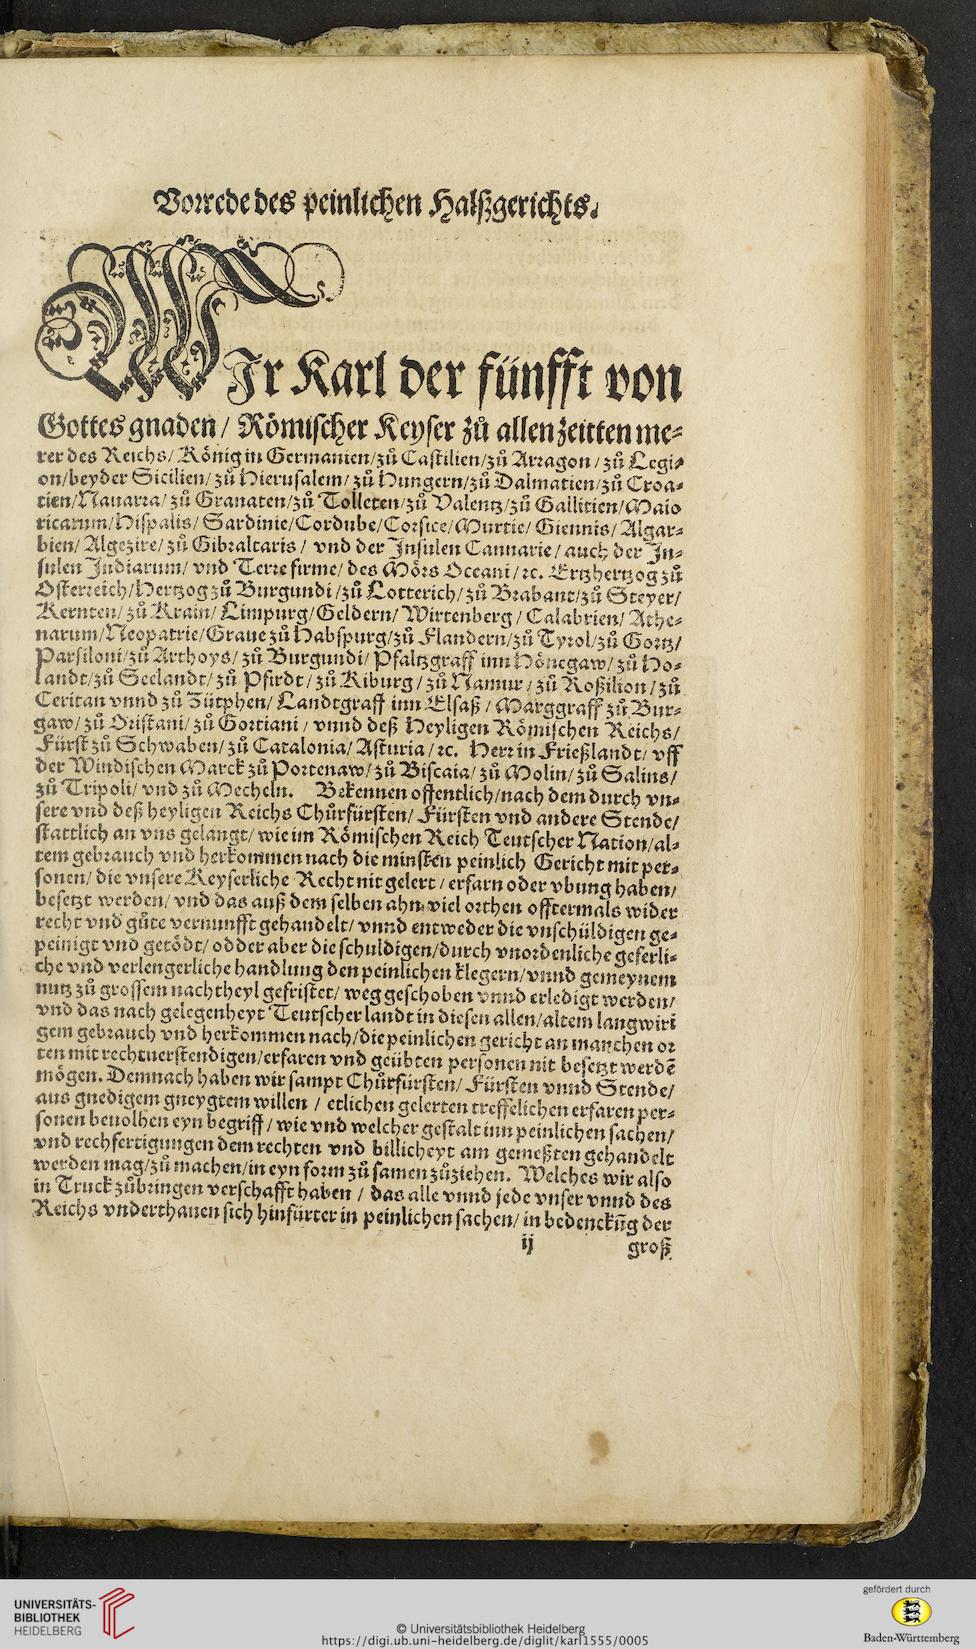 Vorrede des peinlichen Halßgerichts.
WIr Karl der fünfft von
Gottes gnaden/ Römischer Keyser zů allen zeitten me⸗
rer des Reichs/ König in Germanien/ zů Castilien/ zů Arragon/ zů Legi⸗
on/ beyder Sicilien/ zů Hierusalem/ zů Hungern/ zů Dalmatien/ zů Croa⸗
tien/ Nauarra/ zů Granaten/ zů Tolleten/ zů Valentz/ zů Gallitien/ Maio
ricarum/ Hispalis/ Sardinie/ Cordube/ Corsice/ Murtie/ Giennis/ Algar⸗
bien/ Algezire/ zů Gibraltaris/ vnd der Insulen Cannarie/ auch der In⸗
sulen Indiarum/ vnd Terre firme/ des Mörs Oceani/ ꝛc. Ertzhertzog zů
Osterreich/ Hertzog zů Burgundi/ zů Lotterich/ zů Brabant/ zů Steyer/
Kernten/ zů Krain/ Limpurg/ Geldern/ Wirtenberg/ Calabrien/ Athe⸗
narum/ Neopatrie/ Graue zů Habspurg/ zů Flandern/ zů Tyrol/ zů Gortz/
Parsiloni/ zů Arthoys/ zů Burgundi/ Pfaltzgraff inn Hönegaw/ zů Ho⸗
landt/ zů Seelandt/ zů Pfirdt/ zů Kiburg/ zů Namur/ zů Roßilion/ zů
Ceritan vnnd zů Zütphen/ Landtgraff inn Elsaß/ Marggraff zů Bur⸗
gaw/ zů Oristani/ zů Gortiani/ vnnd deß Heyligen Römischen Reichs/
Fürst zů Schwaben/ zů Catalonia/ Asturia/ ꝛc. Herr in Frießlandt/ vff
der Windischen Marck zů Portenaw/ zů Biscaia/ zů Molin/ zů Salins/
zů Tripoli/ vnd zů Mecheln. Bekennen offentlich/ nach dem durch vn⸗
sere vnd deß heyligen Reichs Chůrfürsten/ Fürsten vnd andere Stende/
stattlich an vns gelangt/ wie im Römischen Reich Teutscher Nation/ al⸗
tem gebrauch vnd herkommen nach die minsten peinlich Gericht mit per⸗
sonen/ die vnsere Keyserliche Recht nit gelert/ erfarn oder vbung haben/
besetzt werden/ vnd das auß dem selben ahn viel orthen offtermals wider
recht vnd gůte vernunfft gehandelt/ vnnd entweder die vnschüldigen ge⸗
peinigt vnd getödt/ odder aber die schuldigen/ durch vnordenliche geferli⸗
che vnd verlengerliche handlung den peinlichen klegern/ vnnd gemeynem
nutz zů grossem nachtheyl gefristet/ weg geschoben vnnd erledigt werden/
vnd das nach gelegenheyt Teutscher landt in diesen allen/ altem langwiri
gem gebrauch vnd herkommen nach/ die peinlichen gericht an manchen or
ten mit rechtuerstendigen/ erfaren vnd geübten personen nit besetzt werdē
mögen. Demnach haben wir sampt Chůrfürsten/ Fürsten vnnd Stende/
aus gnedigem gneygtem willen / etlichen gelerten treffelichen erfaren per⸗
sonen beuolhen eyn begriff/ wie vnd welcher gestalt inn peinlichen sachen/
vnd rechfertigungen dem rechten vnd billicheyt am gemeßten gehandelt
werden mag/ zů machen/ in eyn form zů samen zůziehen. Welches wir also
in Truck zůbringen verschafft haben / das alle vnnd jede vnser vnnd des
Reichs vnderthanen sich hinfürter in peinlichen sachen/ in bedenckūg der
ij groß
UNIVERSITÄTS-
BIBLIOTHEK
HEIDELBERG
© Universitätsbibliothek Heidelberg
https://digi.ub.uni-heidelberg.de/diglit/karl1555/0005
gefördert durch
Baden-Württemberg